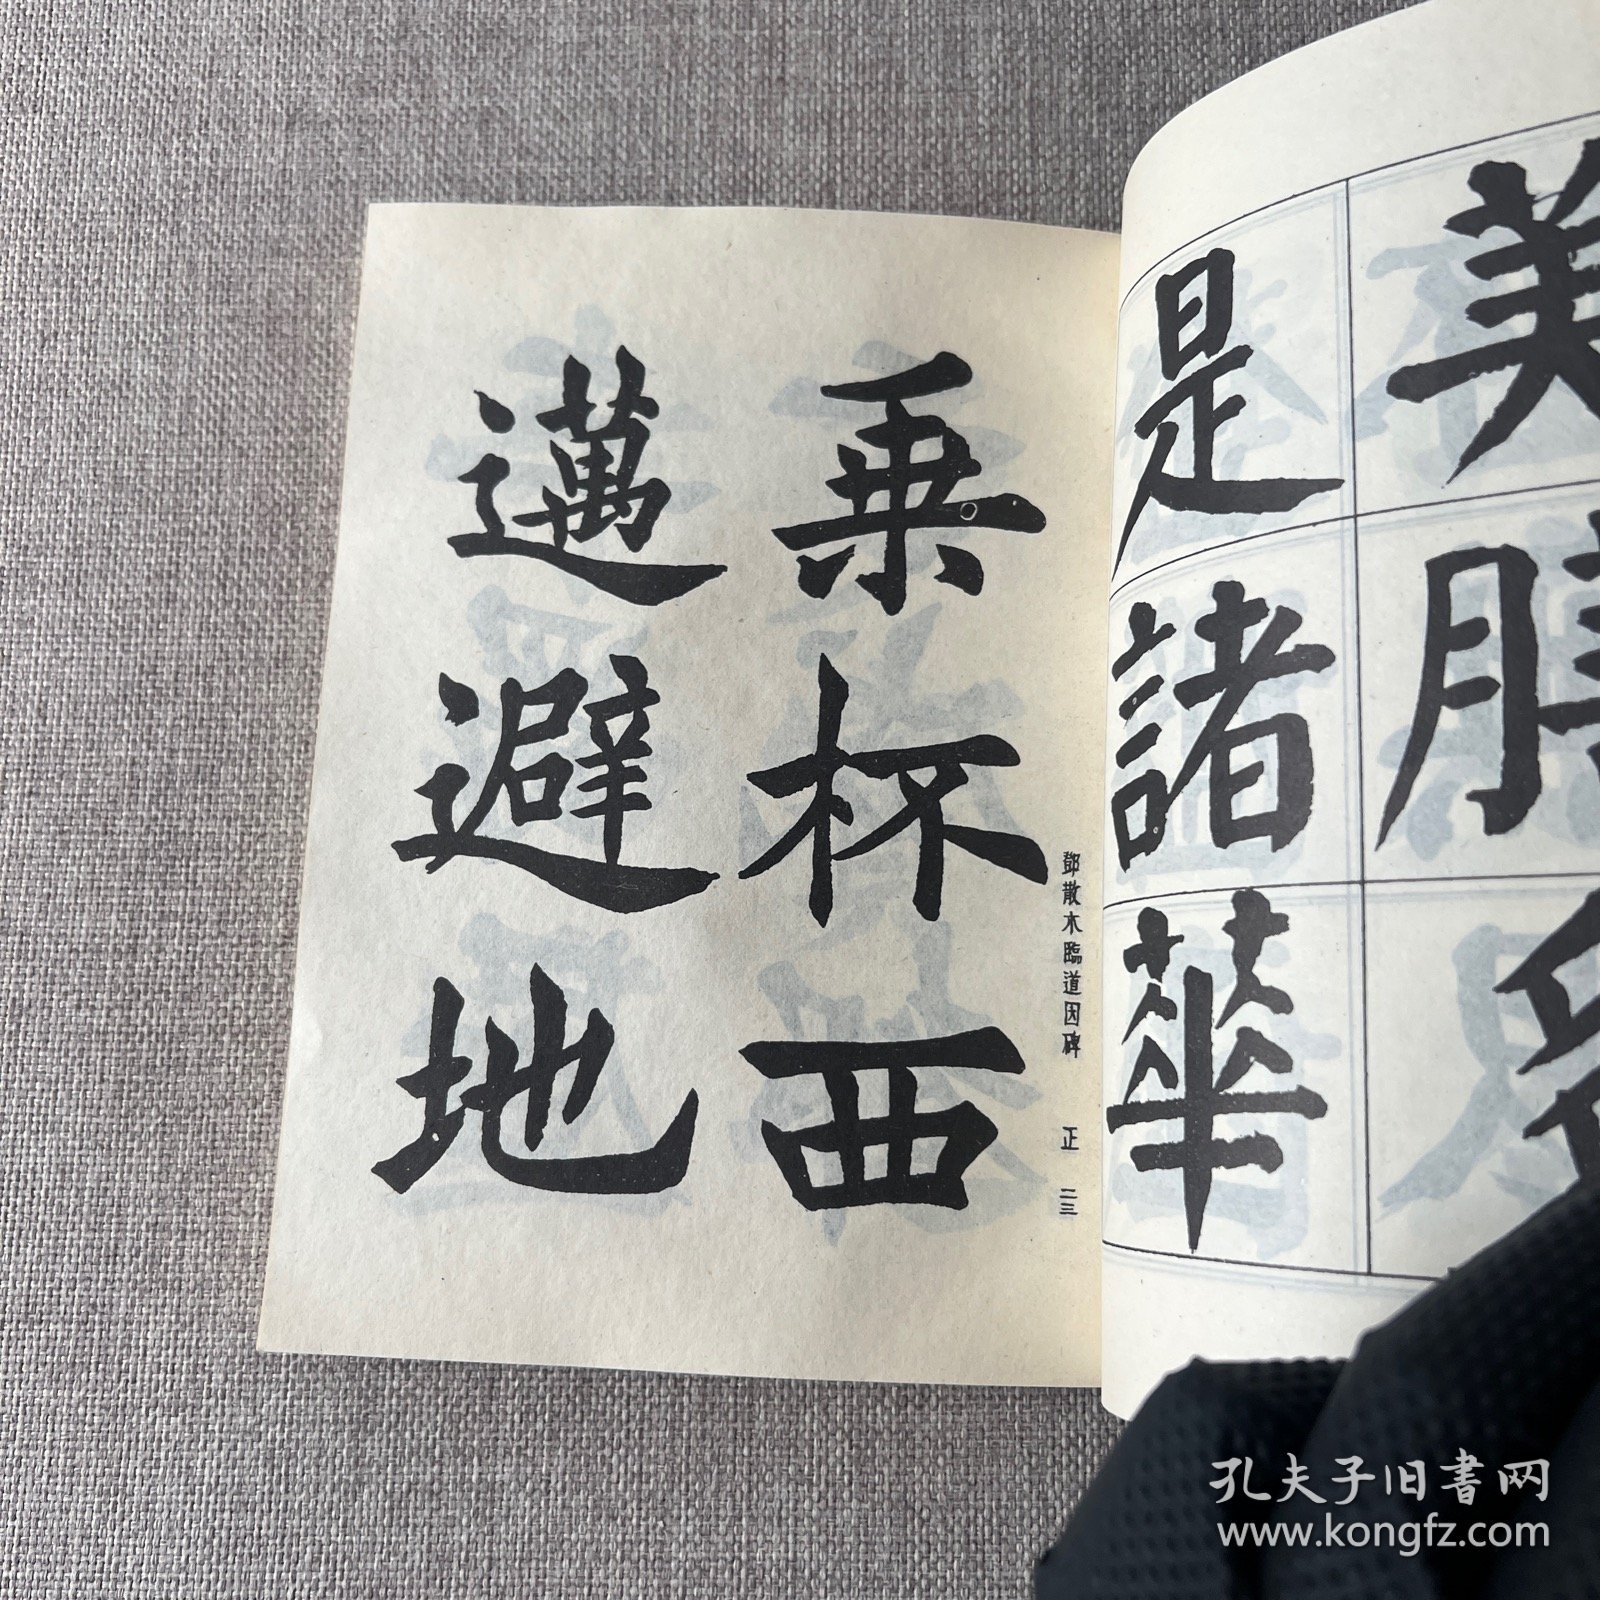 是諸華
乗杯西
邁避地
鄧散木臨道因碑 正 二三
孔夫子旧書网
www.kongfz.com